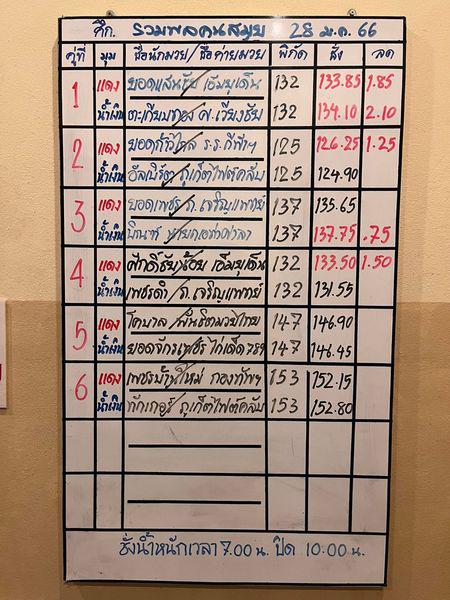 ศึก. รวมพลคนสมุย 28 ม.ค. 66
คู่ที่ มุม ชื่อนักมวย/ชื่อค่ายมวย พิกัด ชั่ง ลด
1 แดง ยอดแสนชัย/เอ็มยูเด็น 132 133.85 1.85
น้ำเงิน ตะเกียบทอง/ศ.เวียงชัย 132 134.10 2.10
2 แดง 125 126.25 1.25
น้ำเงิน อัลเบิร์ต/ภูเก็ตไฟต์คลับ 125 124.90
3 แดง ยอดเพชร/ภ.เจริญแพทย์ 137 135.65
น้ำเงิน 137 137.75 .75
4 แดง ศักดิ์ชัยน้อย/เอ็มยูเด็น 132 133.50 1.50
น้ำเงิน เพชรดำ/ภ.เจริญแพทย์ 132 131.55
5 แดง โคบาล/พันธ์ตรมวยไทย 147 146.90
น้ำเงิน ยอดจักรเพชร/ไก่เด็ด 789 147 146.45
6 แดง เพชรบ้านใหม่/กองทัพฯ 153 152.15
น้ำเงิน ทักเกอร์/ภูเก็ตไฟต์คลับ 153 152.80
ชั่งน้ำหนักเวลา 7.00 น. ปิด 10.00 น.